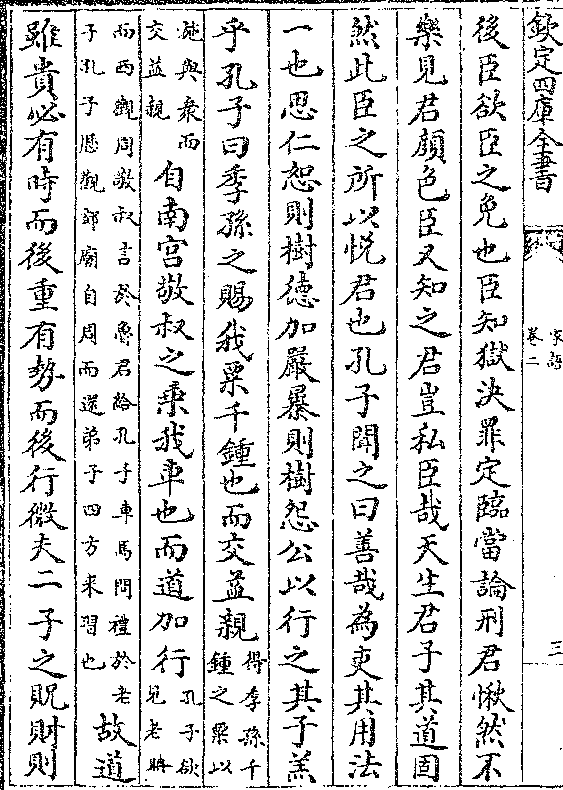 欽定四庫全書
家語
卷二
三
後臣欲臣之免也臣知獄決罪定臨當論刑君愀然不
樂見君顔色臣又知之君豈私臣哉天生君子其道固
然此臣之所以悦君也孔子聞之曰善哉為吏其用法
一也思仁恕則樹德加嚴暴則樹怨公以行之其子羔
乎孔子曰季孫之賜我粟千鍾也而交益親得季孫千鍾之粟以
施與衆而交益親自南宫敬叔之乗我車也而道加行孔子欲見老聃
而西觀周敬叔言於魯君給孔子車馬問禮於老子孔子歴觀郊廟自周而還弟子四方來習也故道
雖貴必有時而後重有勢而後行微夫二子之貺財則